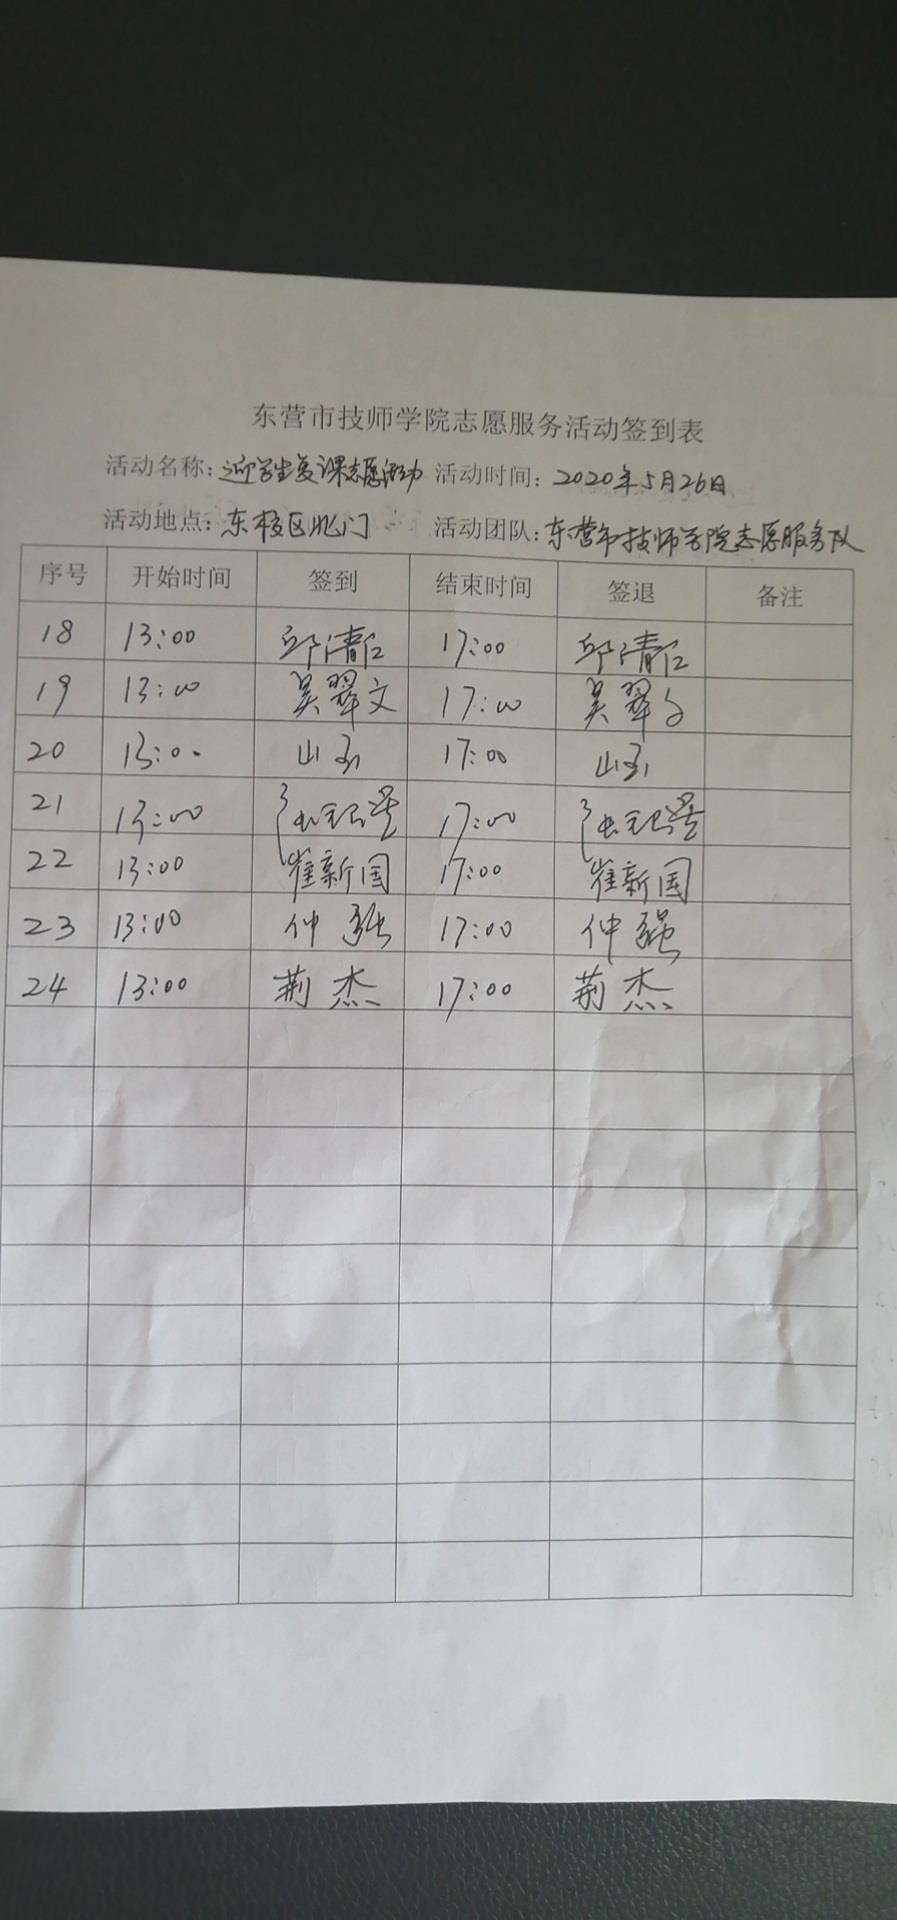 东营市技师学院志愿服务活动签到表
活动名称：迎学生复课志愿活动 活动时间：2020年5月26日
活动地点：东校区北门 活动团队：东营市技师学院志愿服务队
序号 开始时间 签到 结束时间 签退 备注
18 13:00 邱清仁 17:00 邱清仁
19 13:00 吴翠文 17:00 吴翠文
20 13:00 山 17:00 山
21 13:00 17:00
22 13:00 崔新国 17:00 崔新国
23 13:00 仲强 17:00 仲强
24 13:00 荆杰 17:00 荆杰